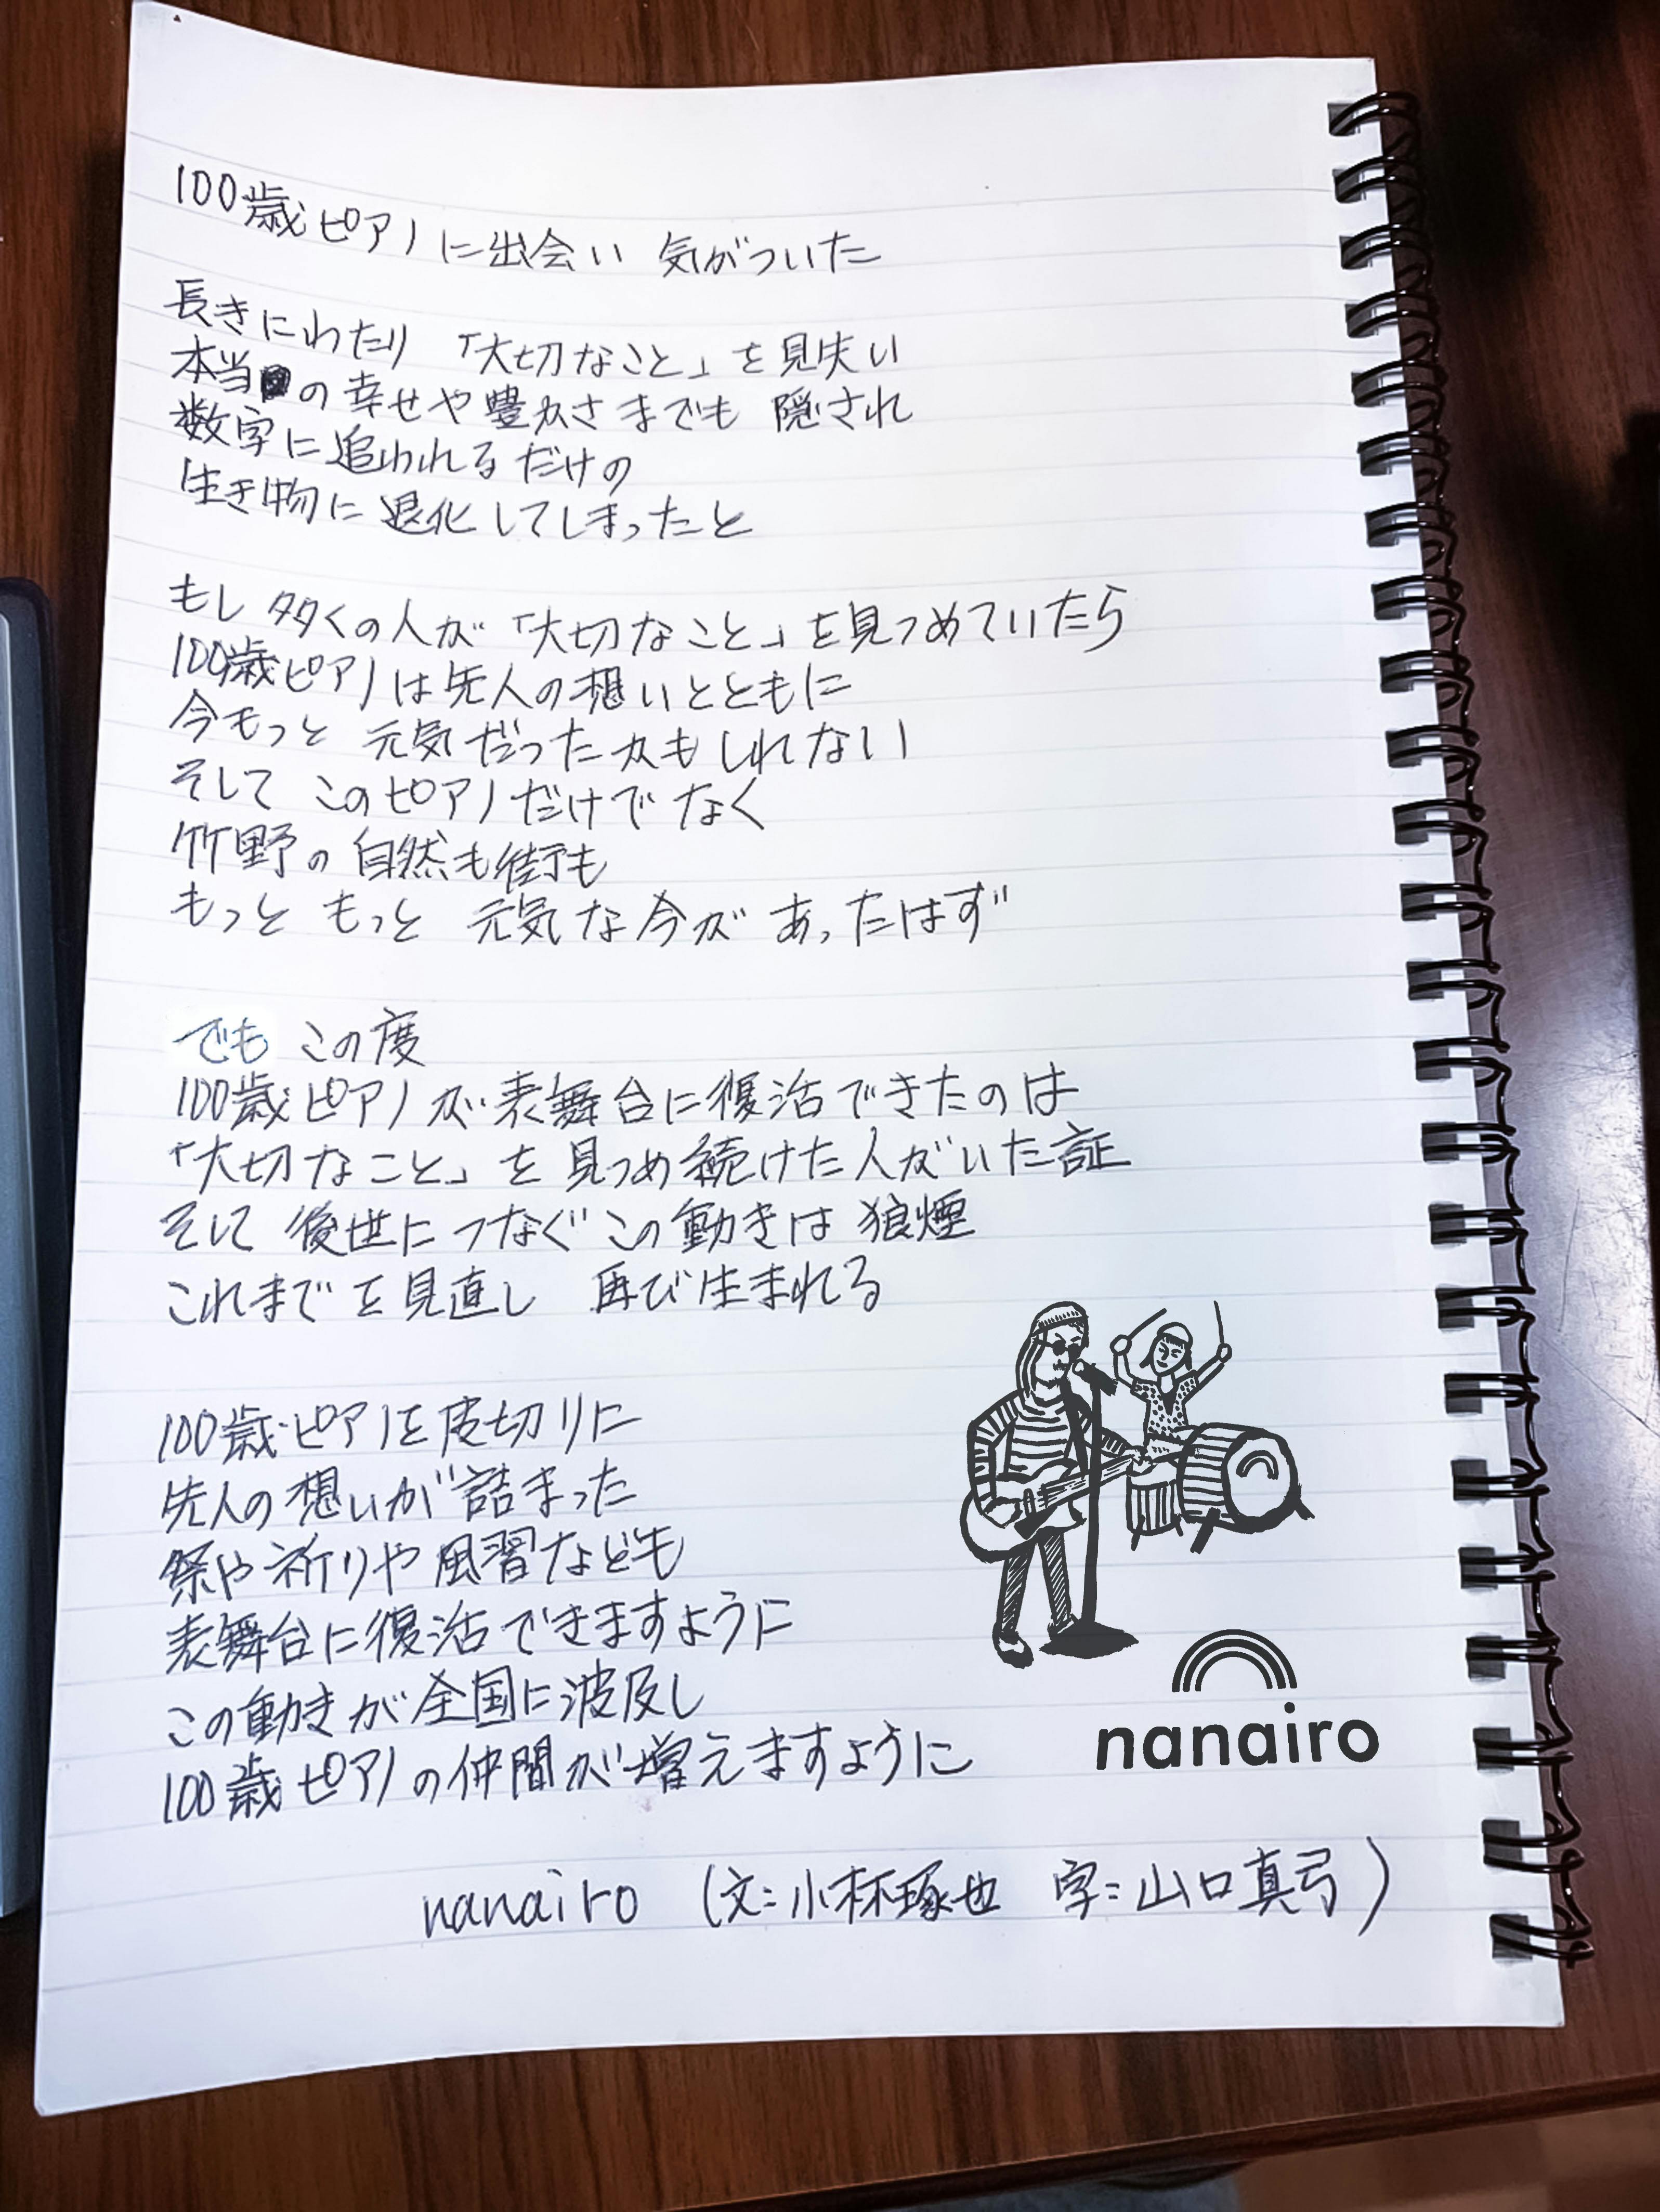 100歳ピアノに出会い 気がついた
長きにわたり 「大切なこと」を見失い
本当の幸せや豊かさまでも 隠され
数字に追われるだけの
生き物に退化してしまったと
もし 多くの人が「大切なこと」を見つめていたら
100歳ピアノは先人の想いとともに
今もっと 元気だったかもしれない
そして このピアノだけでなく
竹野の自然も街も
もっと もっと 元気な今が あったはず
でも この度
100歳ピアノが表舞台に復活できたのは
「大切なこと」を見つめ続けた人がいた証
そして 後世につなぐこの動きは 狼煙
これまでを見直し 再び生まれる
100歳ピアノを皮切りに
先人の想いが詰まった
祭や祈りや風習なども
表舞台に復活できますように
この動きが全国に波及し
100歳ピアノの仲間が増えますように
nanairo
nanairo (文:小林琢也 字:山口真弓)